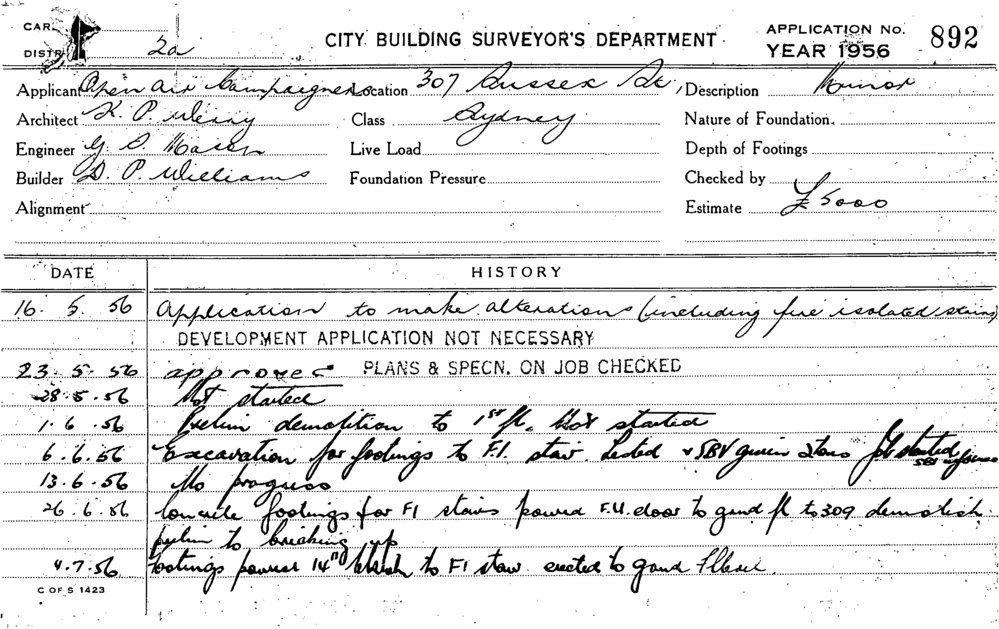 CAR.
DISTR. 2a
CITY BUILDING SURVEYOR'S DEPARTMENT
APPLICATION No. 892
YEAR 1956
Applicant Open Air Campaigners Location 307 Sussex St, Description Minor
Architect K. P. Class Sydney Nature of Foundation
Engineer G. S. Mason Live Load Depth of Footings
Builder D. P. Williams Foundation Pressure Checked by
Alignment Estimate £5000
DATE HISTORY
16. 5. 56 Application to make alterations (including fire isolated stairs)
DEVELOPMENT APPLICATION NOT NECESSARY
23. 5. 56 approved PLANS & SPECN. ON JOB CHECKED
28.5.56 Not started
1.6.56 Prelim demolition to 1st fl. Not started
6.6.56 Excavation for footings to F.I. stair. Tested & SBV given Job started
13.6.56 No progress
26.6.56 Concrete footings for FI stairs poured door to grnd fl to 309 demolish
prelim to bricking up
4.7.56 Footings poured 14" to FI stair erected to grnd
C OF S 1423